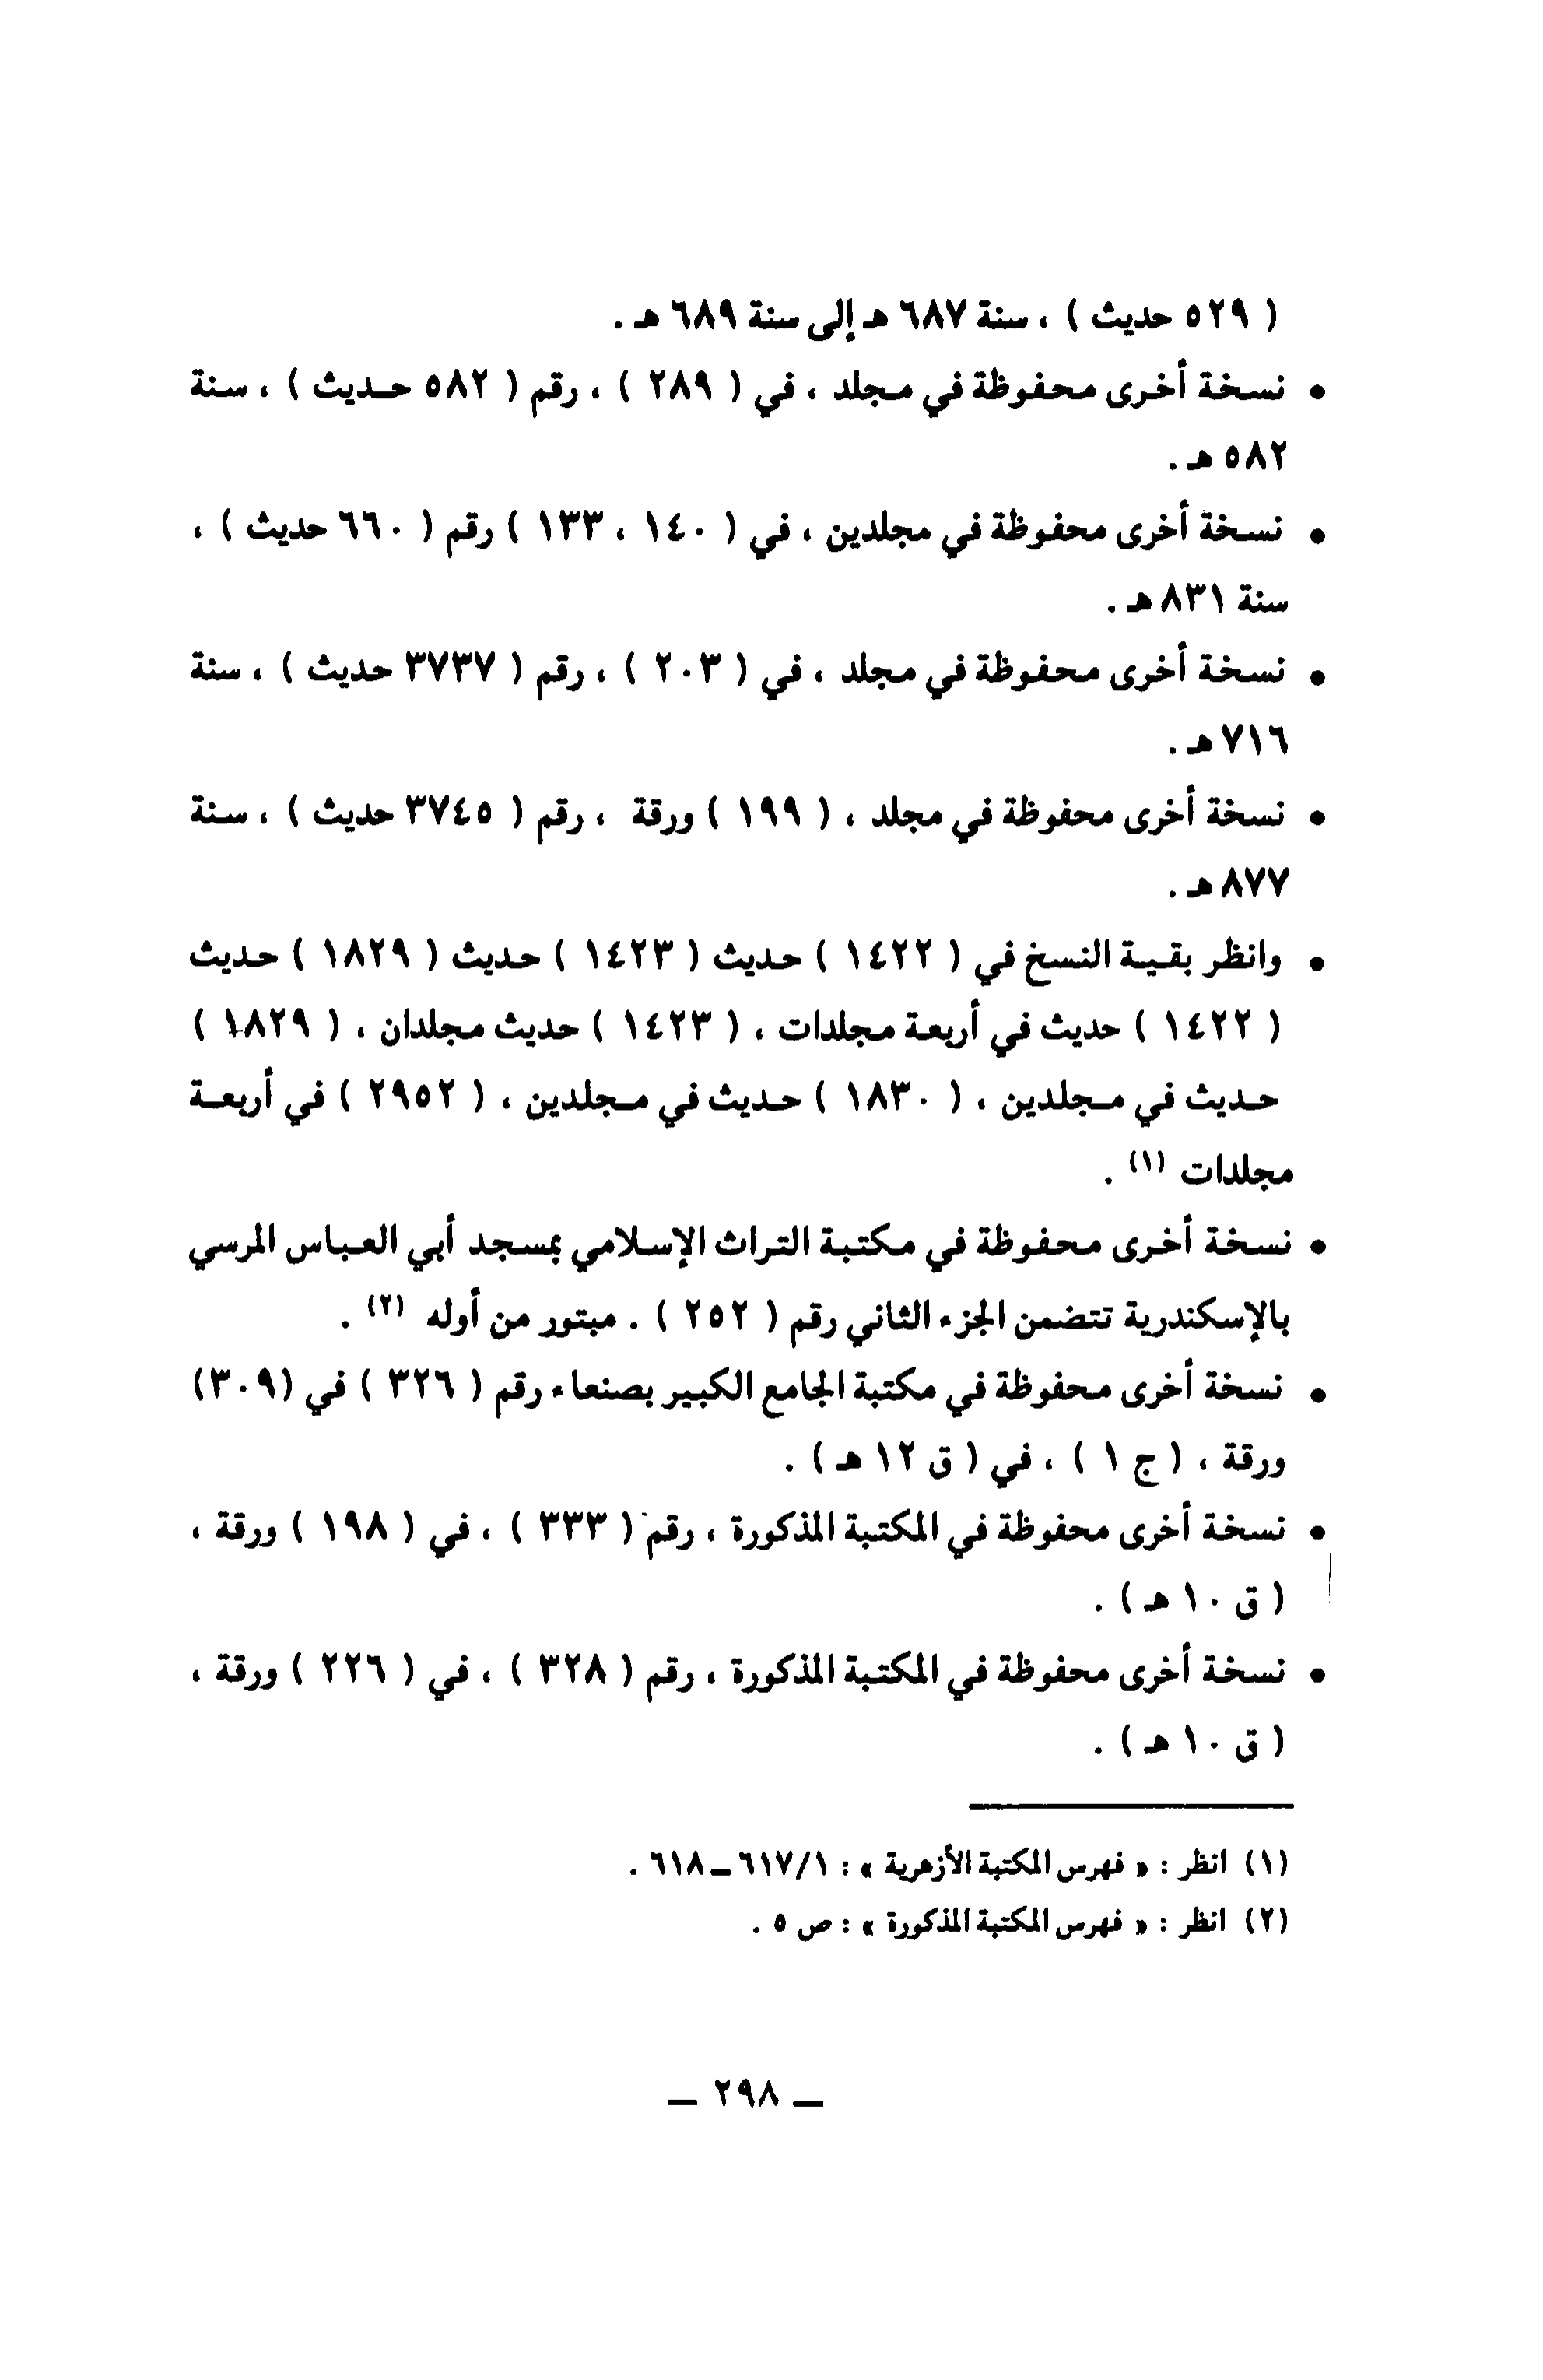 ( ٥٢٩ حديث ) ، سنة ٦٨٧ هـ إلى سنة ٦٨٩ هـ .
• نسخة أخرى محفوظة في مجلد ، في ( ٢٨٩ ) ، رقم ( ٥٨٢ حديث ) ، سنة
٥٨٢ هـ .
• نسخة أخرى محفوظة في مجلدين ، في ( ١٤٠ ، ١٣٣ ) رقم ( ٦٦٠ حديث ) ،
سنة ٨٣١ هـ .
• نسخة أخرى محفوظة في مجلد ، في ( ٢٠٣ ) ، رقم ( ٣٧٣٧ حديث ) ، سنة
٧١٦ هـ .
• نسخة أخرى محفوظة في مجلد ، ( ١٩٩ ) ورقة ، رقم ( ٣٧٤٥ حديث ) ، سنة
٨٧٧ هـ .
• وانظر بقية النسخ في ( ١٤٢٢ ) حديث ( ١٤٢٣ ) حديث ( ١٨٢٩ ) حديث
( ١٤٢٢ ) حديث في أربعة مجلدات ، ( ١٤٢٣ ) حديث مجلدان ، ( ١٨٢٩ )
حديث في مجلدين ، ( ١٨٣٠ ) حديث في مجلدين ، ( ٢٩٥٢ ) في أربعة
مجلدات (١) .
• نسخة أخرى محفوظة في مكتبة التراث الإسلامي بمسجد أبي العباس المرسي
بالإسكندرية تتضمن الجزء الثاني رقم ( ٢٥٢ ) . مبتور من أوله (٢) .
• نسخة أخرى محفوظة في مكتبة الجامع الكبير بصنعاء رقم ( ٣٢٦ ) في (٣٠٩)
ورقة ، ( ج ١ ) ، في ( ق ١٢ هـ ) .
• نسخة أخرى محفوظة في المكتبة المذكورة ، رقم ( ٣٣٣ ) ، في ( ١٩٨ ) ورقة ،
( ق ١٠ هـ ) .
• نسخة أخرى محفوظة في المكتبة المذكورة ، رقم ( ٣٢٨ ) ، في ( ٢٢٦ ) ورقة ،
( ق ١٠ هـ ) .
(١) انظر : « فهرس المكتبة الأزهرية » : ٦١٧/١ ــ ٦١٨ .
(٢) انظر : « فهرس المكتبة المذكورة » : ص ٥ .
ــ ٢٩٨ ــ